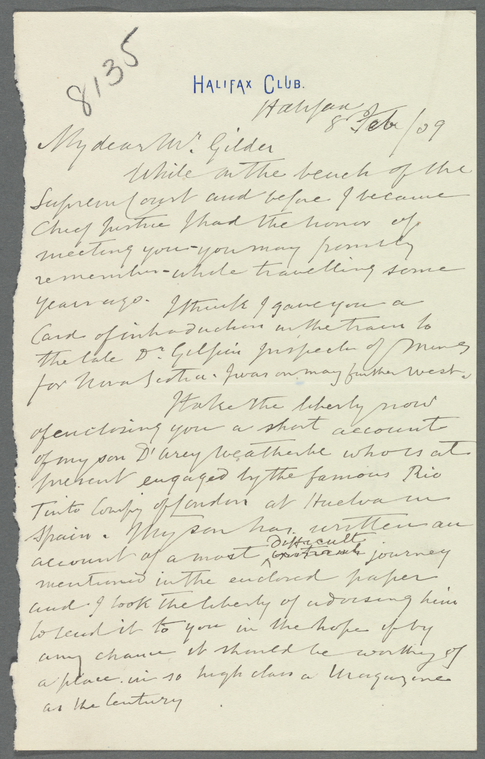 8135
HALIFAX CLUB.
Halifax
8 Feb/09
My dear Mr. Gilder
While on the bench of the
Supreme Court and before I became
Chief Justice I had the honor of
meeting you - you may possibly
remember - while travelling some
years ago. I think I gave you a
Card of introduction on the train to
the late Dr. Gilpin Inspector of Mines
for Nova Scotia. I was on my further west.
I take the liberty now
of enclosing you a short account
of my son D'Arcy Weatherbe who is at
present engaged by the famous Rio
Tinto Compy of London at Huelva in
Spain. My son has written an
account of a most difficult journey
mentioned in the enclosed paper
and I took the liberty of advising him
to send it to you in the hope if by
any chance it should be worthy of
a place in so high class a Magazine
as the Century